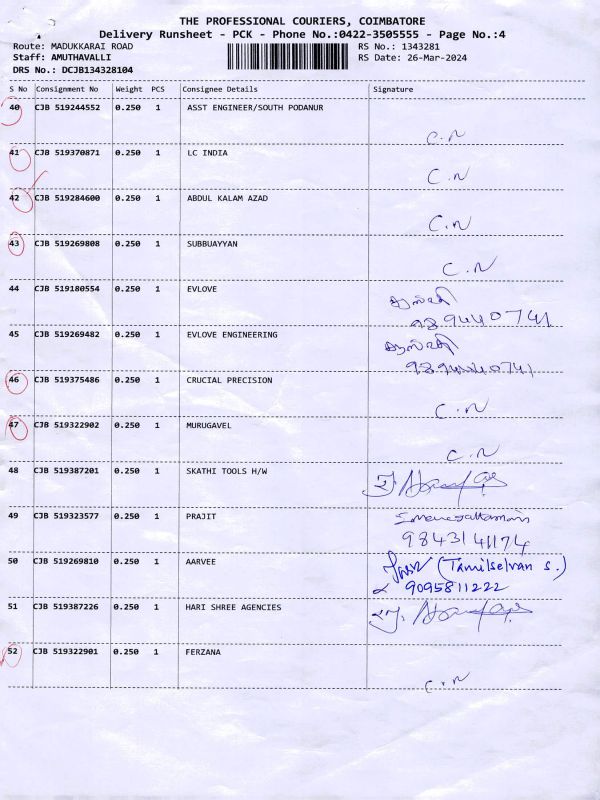 THE PROFESSIONAL COURIERS, COIMBATORE
Delivery Runsheet - PCK - Phone No.:0422-3505555 - Page No.:4
Route: MADUKKARAI ROAD RS No.: 1343281
Staff: AMUTHAVALLI RS Date: 26-Mar-2024
DRS No.: DCJB134328104
S No Consignment No Weight PCS Consignee Details Signature
40 CJB 519244552 0.250 1 ASST ENGINEER/SOUTH PODANUR
C.N
41 CJB 519370871 0.250 1 LC INDIA
C.N
42 CJB 519284600 0.250 1 ABDUL KALAM AZAD
C.N
43 CJB 519269808 0.250 1 SUBBUAYYAN
C.N
44 CJB 519180554 0.250 1 EVLOVE
9894440741
45 CJB 519269482 0.250 1 EVLOVE ENGINEERING
9894440741
46 CJB 519375486 0.250 1 CRUCIAL PRECISION
C.N
47 CJB 519322902 0.250 1 MURUGAVEL
C.N
48 CJB 519387201 0.250 1 SKATHI TOOLS H/W
49 CJB 519323577 0.250 1 PRAJIT
9843141174
50 CJB 519269810 0.250 1 AARVEE (Tamilselvan s.)
9095811222
51 CJB 519387226 0.250 1 HARI SHREE AGENCIES
52 CJB 519322901 0.250 1 FERZANA
C.N